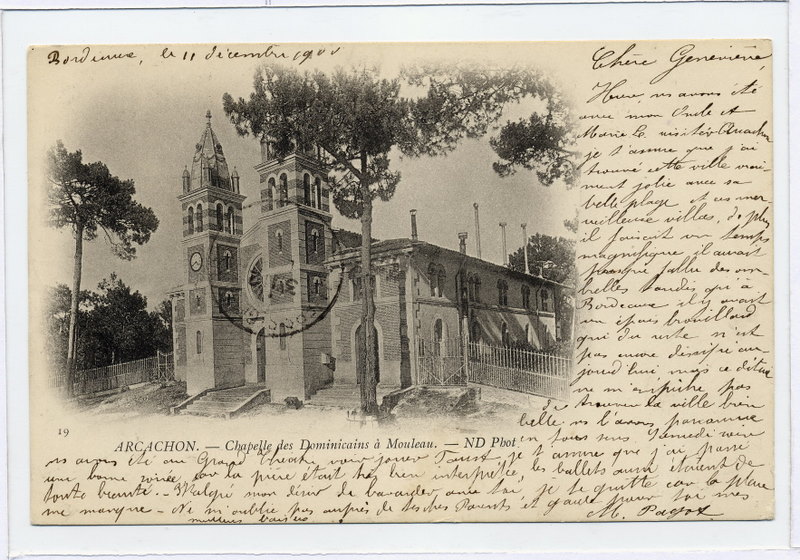 Bordeaux, le 11 décembre 1900
Chère Geneviève,
Hier, ns avons été
avec mon Oncle et
Marie la visiter Arcachon
je t'assure que j'ai
trouvé cette ville vrai-
ment jolie avec sa
belle plage et ses mer-
veilleuse villas, de plus
il faisait un temps
magnifique il aurait
presque fallu des om-
brelles tandis qu'à
Bordeaux il y avait
un épais brouillard
qui du reste n'est
pas encore dissipé au-
jourd'hui mais ce détail
ne m'empêche pas
de trouver la ville bien
belle, ns l'avons parcourue
en tous sens Samedi
19
ARCACHON. — Chapelle des Dominicains à Mouleau. — ND Phot
ns avons été au Grand Théâtre voir jouer Faust, je t'assure que j'ai passé
une bonne soirée car la pièce était très bien interprétée, les ballets aussi étaient de
toute beauté. - Malgré mon désir de bavarder avec toi, je te quitte car la place
me manque - Ne m'oublie pas auprès de tes chers Parents et garde pour toi mes
meilleurs baisers
M. Pagot